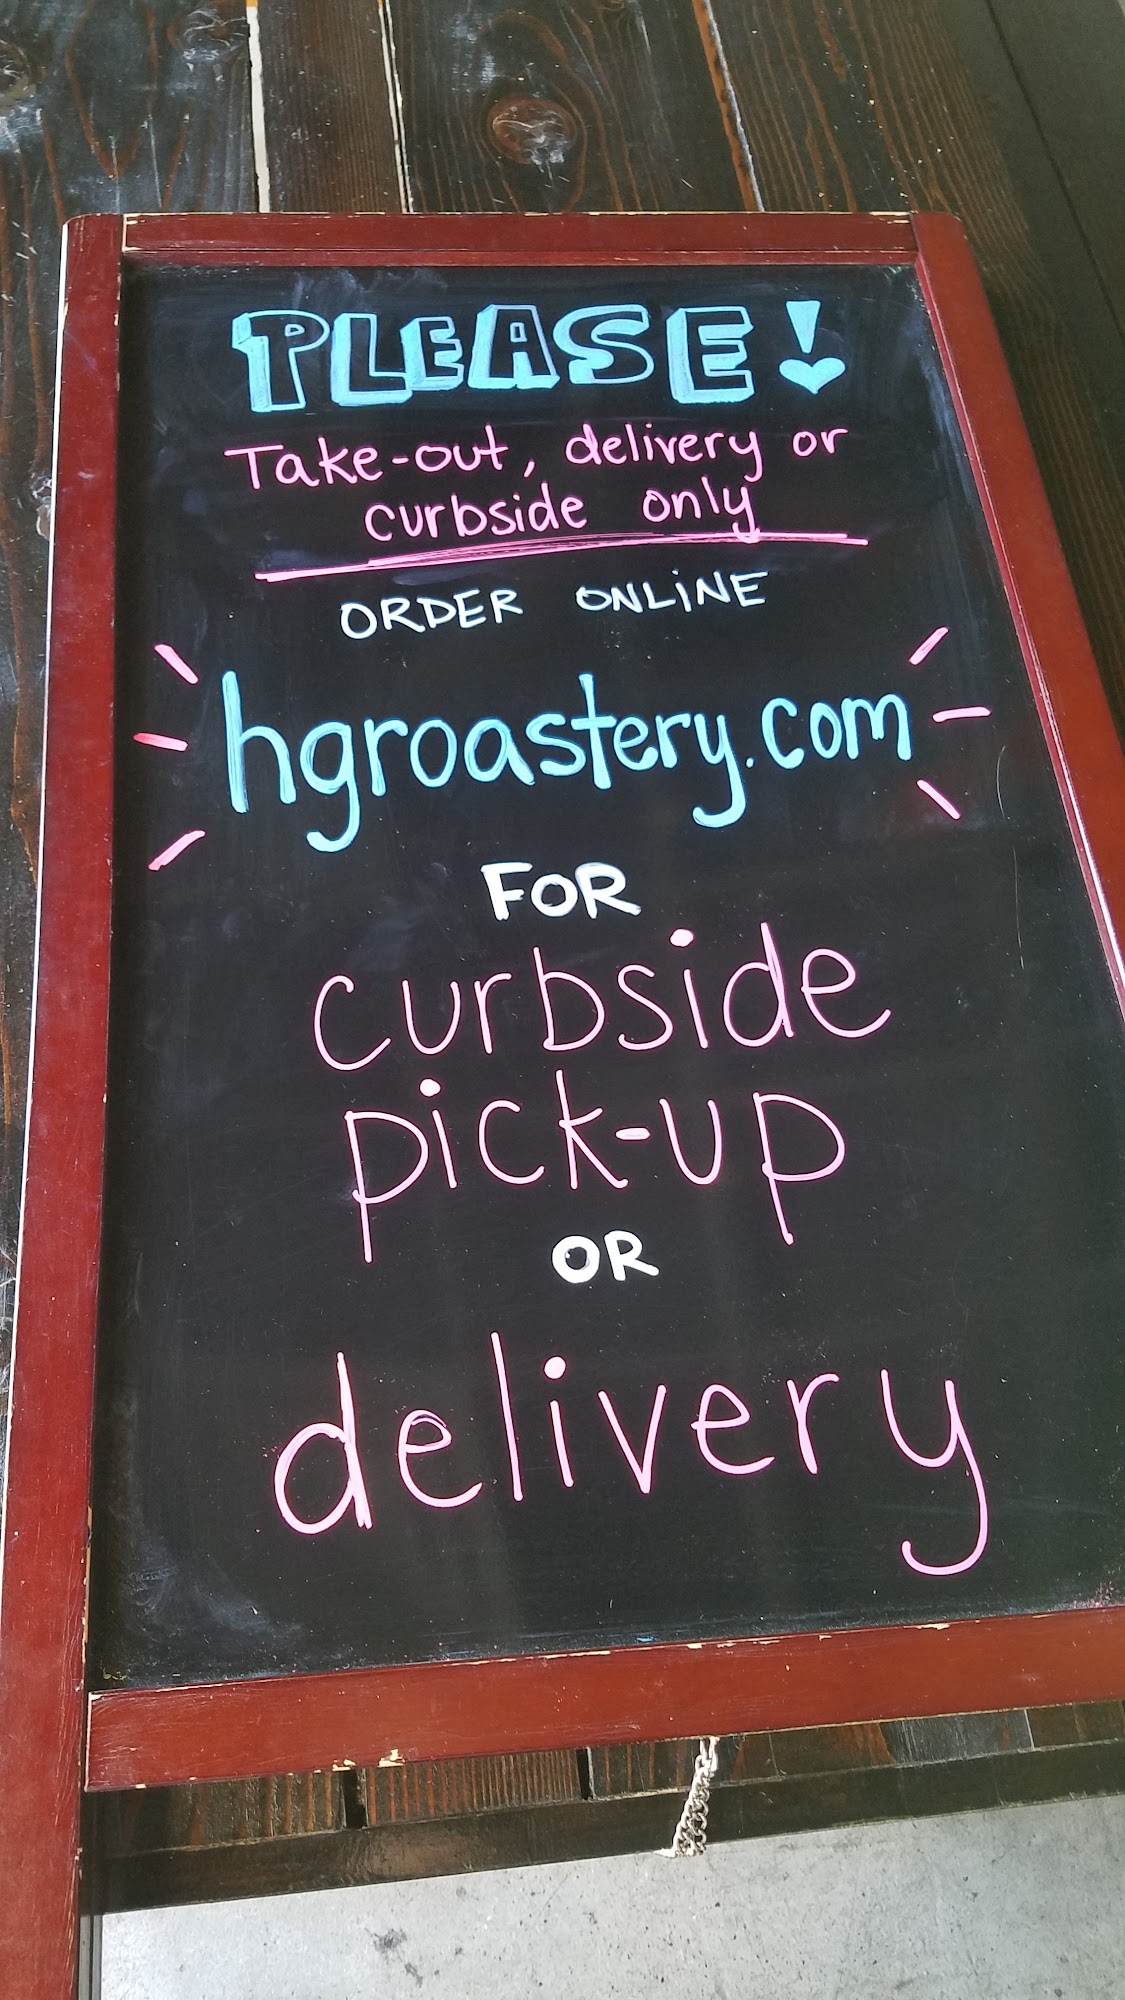 PLEASE!
Take-out, delivery or
curbside only
ORDER ONLINE
hgroastery.com
FOR
curbside
pick-up
OR
delivery